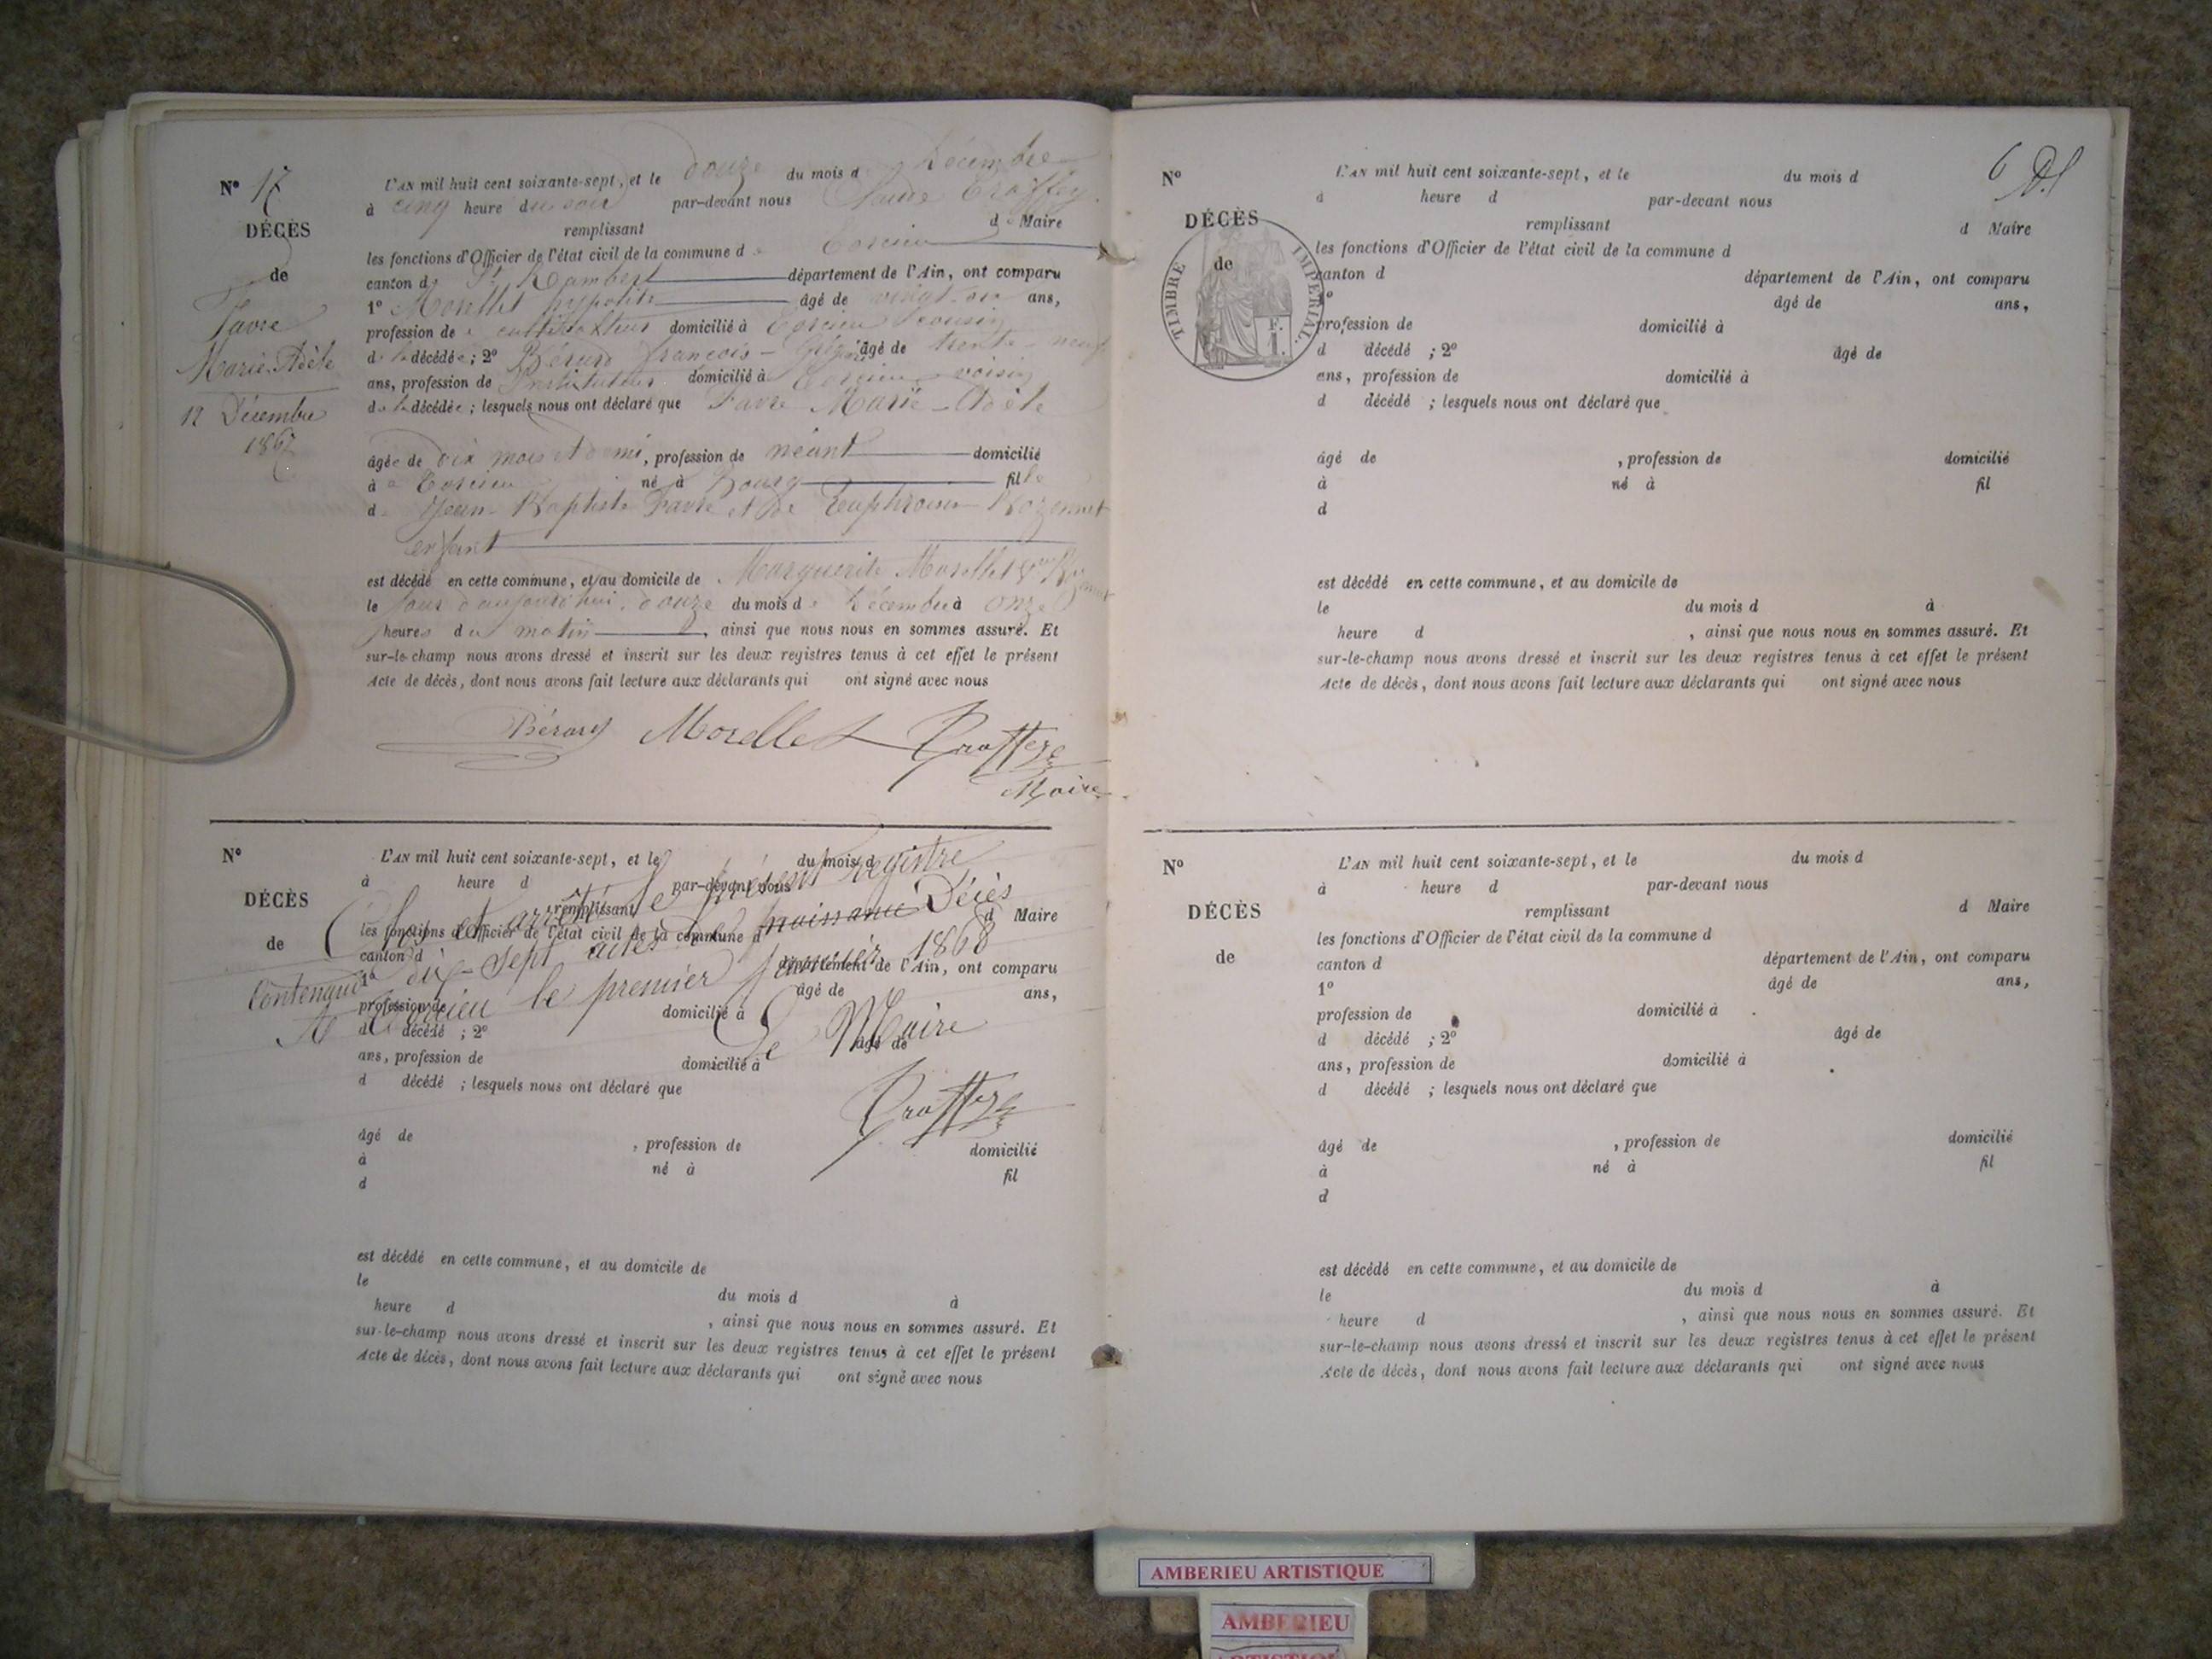 N° 17
DÉCÈS
de
Favre
Marie-Adèle
12 Décembre
1867
L'AN mil huit cent soixante-sept, et le douze du mois de Décembre
à cinq heure du soir par-devant nous
remplissant d Maire
les fonctions d'Officier de l'état civil de la commune de Torcieu
canton de St Rambert département de l'Ain, ont comparu
1° Morellet hypolite âgé de ans,
profession de cultivateur domicilié à Torcieu cousin
de la décédée ; 2° Bérard françois- âgé de trente-neuf
ans, profession de Instituteur domicilié à Torcieu voisin
de la décédée ; lesquels nous ont déclaré que Favre Marie-Adèle
âgée de dix mois et demi, profession de néant domicilié
à Torcieu né à Bourg fille
de Jean-Baptiste Favre et de Euphrosine
enfant
est décédé en cette commune, et au domicile de Marguerite Morellet
le jour d'aujourd'hui, douze du mois de Décembre à onze
heures du matin, ainsi que nous nous en sommes assuré. Et
sur-le-champ nous avons dressé et inscrit sur les deux registres tenus à cet effet le présent
Acte de décès, dont nous avons fait lecture aux déclarants qui ont signé avec nous
Bérard Morellet
Maire
N°
DÉCÈS
de
L'AN mil huit cent soixante-sept, et le du mois d
à heure d par-devant nous
remplissant d Maire
les fonctions d'Officier de l'état civil de la commune d
canton d département de l'Ain, ont comparu
1° âgé de ans,
profession de domicilié à
d décédé ; 2° âgé de
ans, profession de domicilié à
d décédé ; lesquels nous ont déclaré que
Clos et arrêté le présent registre
contenant dix-sept actes de naissance Décès
A Torcieu le premier janvier 1868
Le Maire
âgé de , profession de domicilié
à né à fil
d
est décédé en cette commune, et au domicile de
le du mois d à
heure d , ainsi que nous nous en sommes assuré. Et
sur-le-champ nous avons dressé et inscrit sur les deux registres tenus à cet effet le présent
Acte de décès, dont nous avons fait lecture aux déclarants qui ont signé avec nous
6
N°
DÉCÈS
de
TIMBRE IMPÉRIAL
L'AN mil huit cent soixante-sept, et le du mois d
à heure d par-devant nous
remplissant d Maire
les fonctions d'Officier de l'état civil de la commune d
canton d département de l'Ain, ont comparu
1° âgé de ans,
profession de domicilié à
d décédé ; 2° âgé de
ans, profession de domicilié à
d décédé ; lesquels nous ont déclaré que
âgé de , profession de domicilié
à né à fil
d
est décédé en cette commune, et au domicile de
le du mois d à
heure d , ainsi que nous nous en sommes assuré. Et
sur-le-champ nous avons dressé et inscrit sur les deux registres tenus à cet effet le présent
Acte de décès, dont nous avons fait lecture aux déclarants qui ont signé avec nous
N°
DÉCÈS
de
L'AN mil huit cent soixante-sept, et le du mois d
à heure d par-devant nous
remplissant d Maire
les fonctions d'Officier de l'état civil de la commune d
canton d département de l'Ain, ont comparu
1° âgé de ans,
profession de domicilié à
d décédé ; 2° âgé de
ans, profession de domicilié à
d décédé ; lesquels nous ont déclaré que
âgé de , profession de domicilié
à né à fil
d
est décédé en cette commune, et au domicile de
le du mois d à
heure d , ainsi que nous nous en sommes assuré. Et
sur-le-champ nous avons dressé et inscrit sur les deux registres tenus à cet effet le présent
Acte de décès, dont nous avons fait lecture aux déclarants qui ont signé avec nous
AMBERIEU ARTISTIQUE
AMBERIEU
ARTISTIQUE